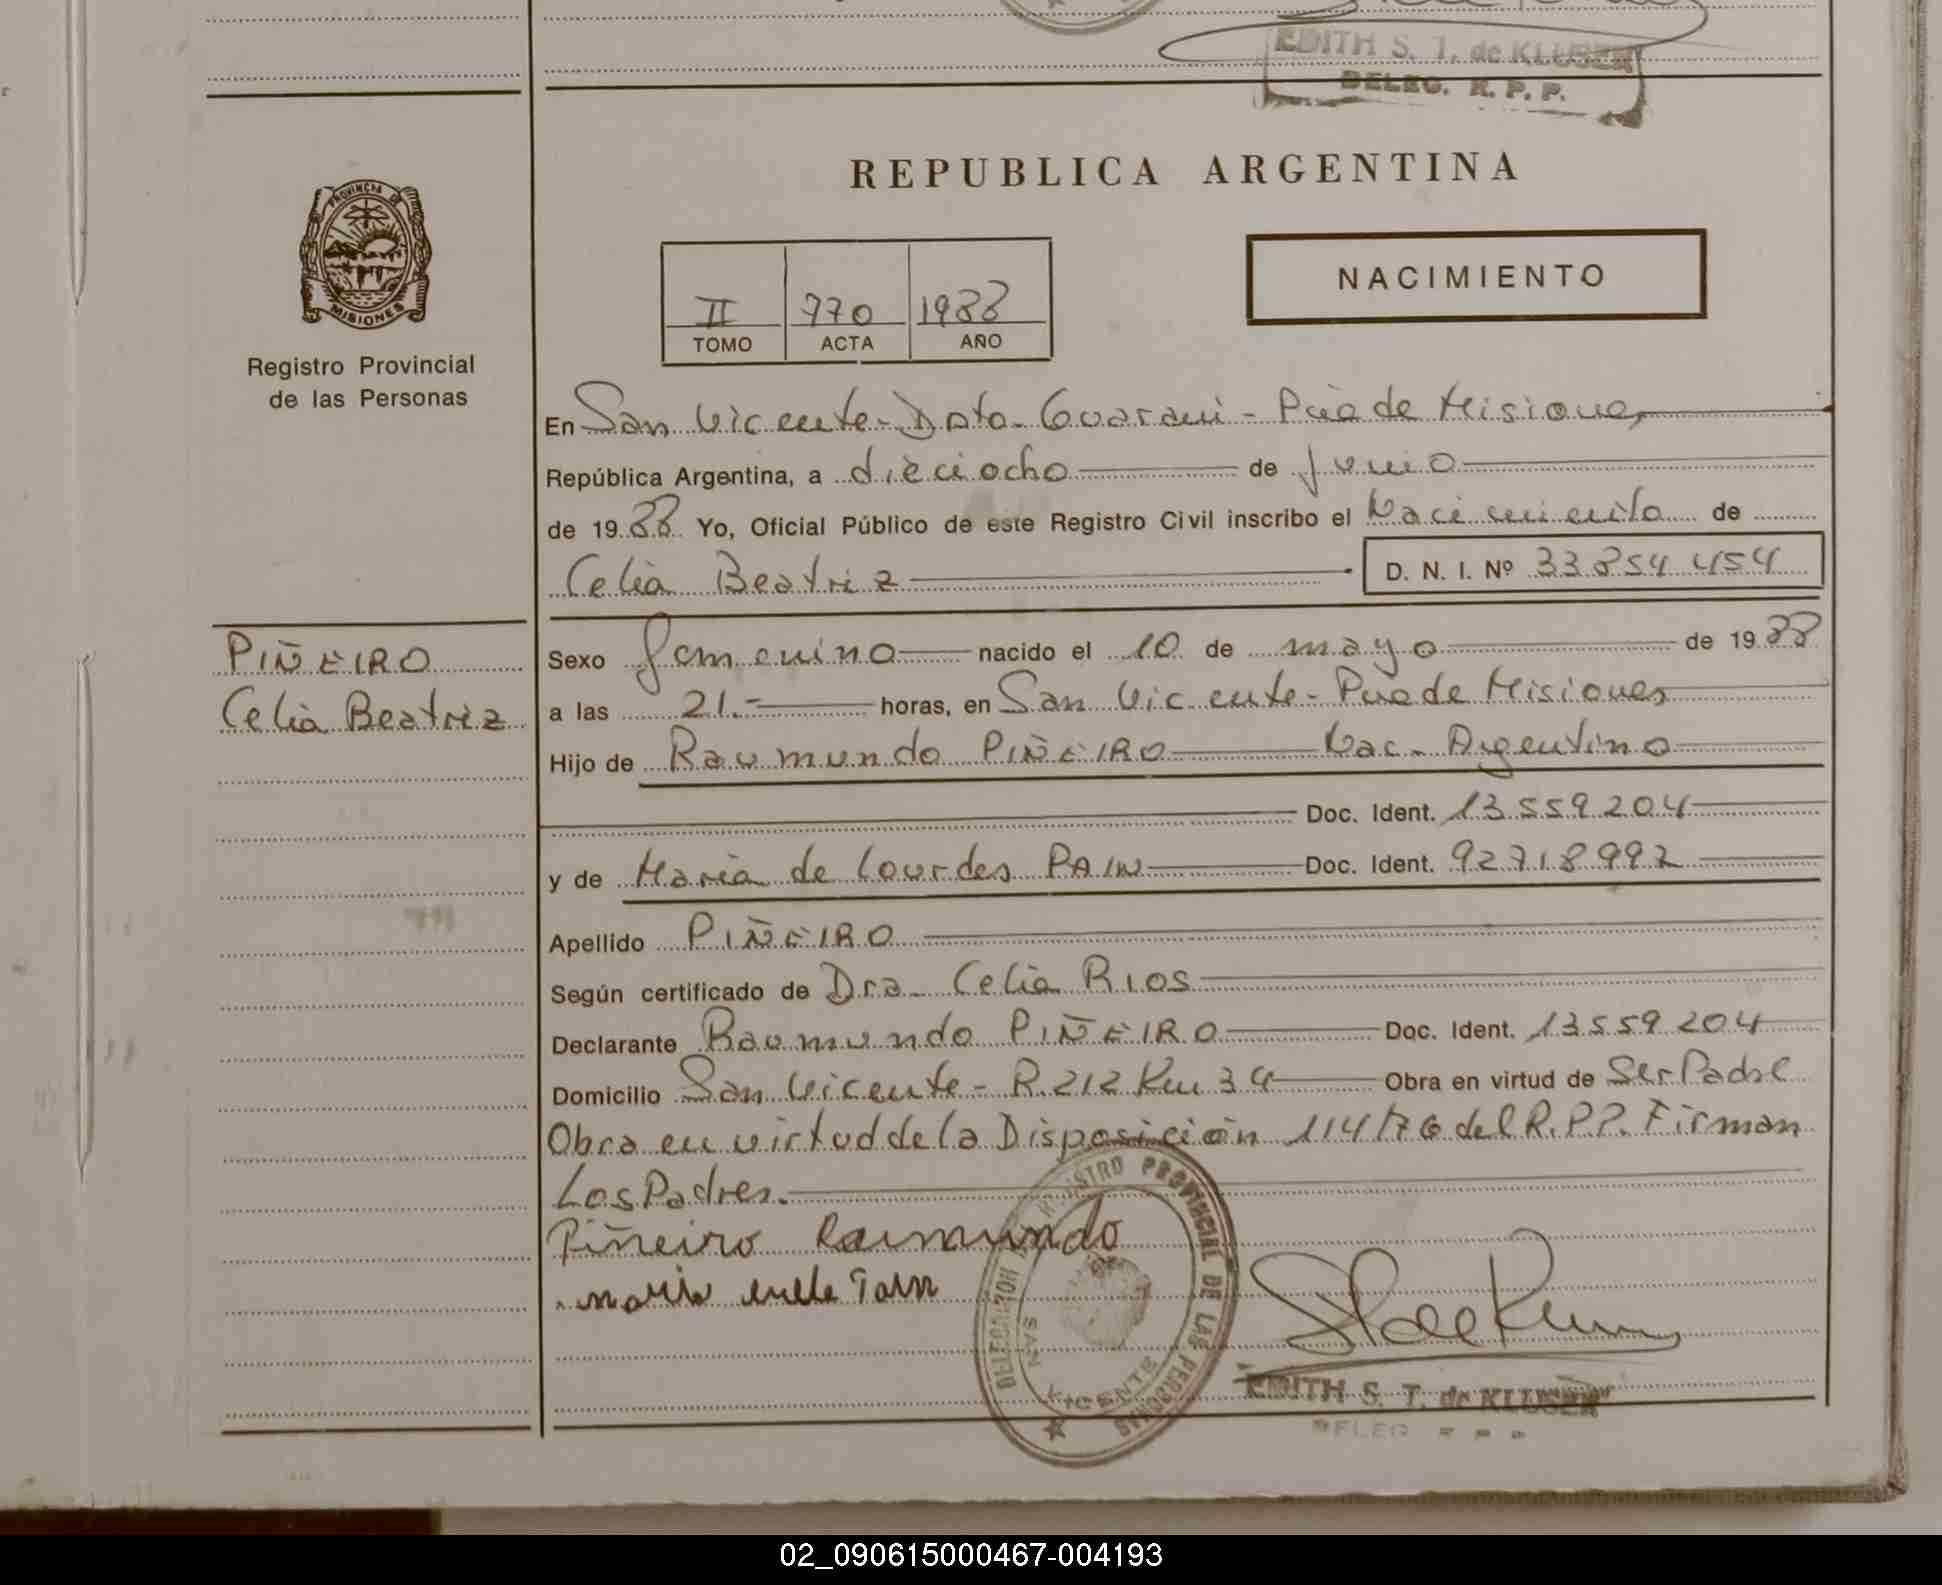 EDITH S. T. de KLUSER
DELEG. R. P. P.
REPUBLICA ARGENTINA
PROVINCIA DE
MISIONES
Registro Provincial
de las Personas
II 770 1988
TOMO ACTA AÑO
NACIMIENTO
En San Vicente - Dpto. Guarani - Pcia de Misiones
República Argentina, a dieciocho de junio
de 1988 Yo, Oficial Público de este Registro Civil inscribo el Nacimiento de
Celia Beatriz D. N. I. Nº 33.854.454
PIÑEIRO
Celia Beatriz
Sexo Femenino nacido el 10 de mayo de 1988
a las 21.- horas, en San Vicente - Pcia de Misiones
Hijo de Raymundo PIÑEIRO Nac. Argentino
Doc. Ident. 13.559.204
y de Maria de Lourdes PAIN Doc. Ident. 92718992
Apellido PIÑEIRO
Según certificado de Dra. Celia RIOS
Declarante Raumundo PIÑEIRO Doc. Ident. 13.559.204
Domicilio San Vicente - R. 212 Km 34 Obra en virtud de Ser Padre
Obra en virtud de la Disposición 114/76 del R.P.P. Firman
Los Padres.
Piñeiro Raimundo
maria
DELEGACION REGISTRO PROVINCIAL DE LAS PERSONAS
SAN VICENTE
EDITH S. T. de KLUSER
DELEG
02_090615000467-004193